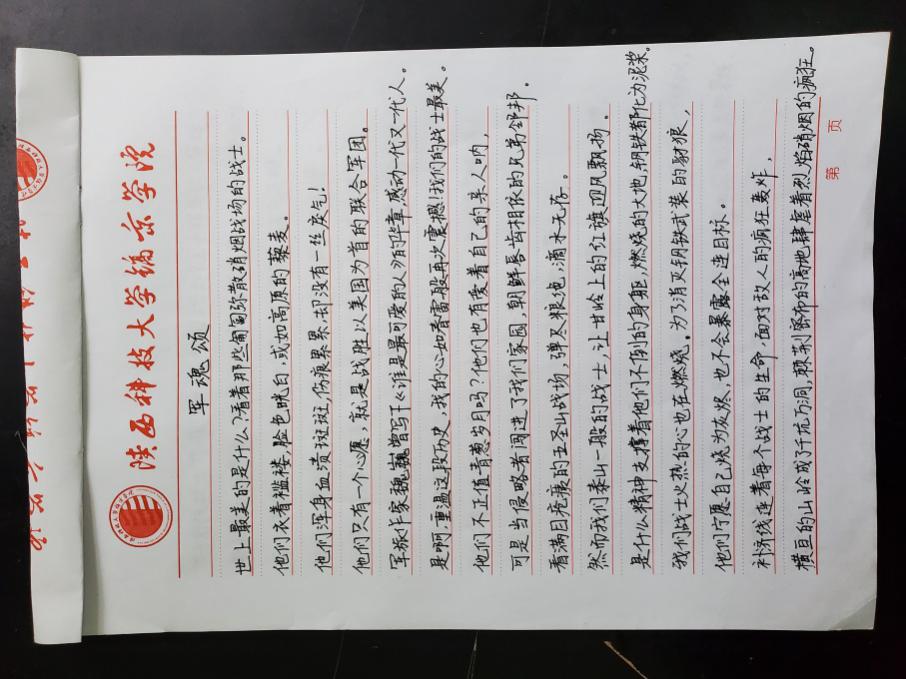 陕西科技大学镐京学院
军魂颂
世上最美的是什么？看着那些匍匐弥散硝烟战场的战士。
他们衣着褴褛，脸色㿠白，或如高原的藜麦。
他们浑身血渍斑斑，伤痕累累却没有一丝戾气！
他们只有一个心愿，就是战胜以美国为首的联合军团。
军旅作家魏巍曾写下《谁是最可爱的人》的华章，感动一代又一代人。
是啊，重温这段历史，我的心如春雷般再次震撼！我们的战士最美。
他们不正值青葱岁月吗？他们也有爱着自己的亲人呐，
可是当侵略者闯进了我们家园，朝鲜唇齿相依的兄弟邻邦。
看满目疮痍的五圣山战场，弹尽粮绝，滴水无存。
然而我们泰山一般的战士，让上甘岭上的红旗迎风飘扬。
是什么精神支撑着他们不倒的身躯，燃烧的大地，钢铁都化为泥浆。
我们战士火热的心也在燃烧。为了消灭钢铁武装的豺狼，
他们宁愿自己烧为灰烬，也不会暴露全连目标。
补济线连着每个战士的生命，面对敌人的疯狂轰炸，
横亘的山岭成了千坑万洞，棘荆密布的高地肆虐着烈焰硝烟的疯狂。
第 页